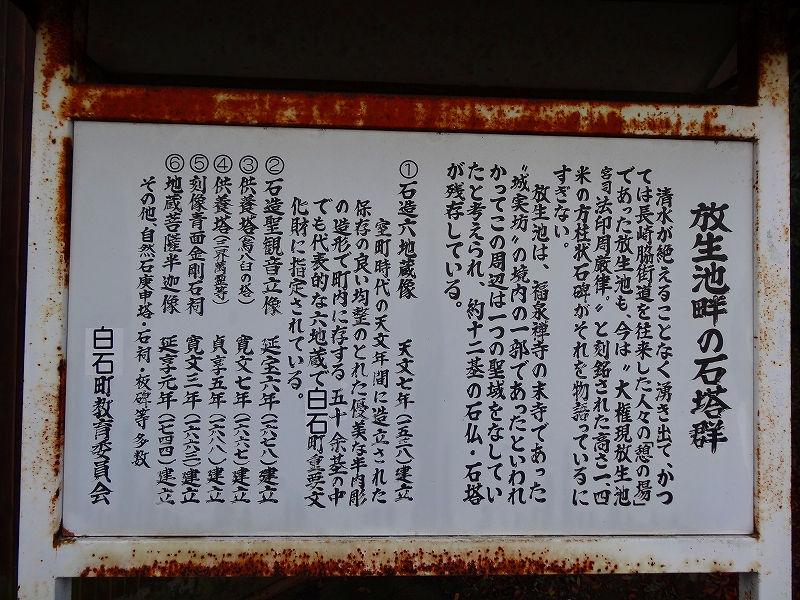 放生池畔の石塔群
清水が絶えることなく湧き出て、かつ
ては長崎脇街道を往来した人々の「憩の場」
であった放生池も、今は〝大権現放生池
宮司法印周厳律〟と刻銘された高さ一・四
米の方柱状石碑がそれを物語っているに
すぎない。
放生池は、福泉禅寺の末寺であった
〝城実坊〟の境内の一部であったといわれ
かってこの周辺は一つの聖域をなしてい
たと考えられ、約十二基の石仏・石塔
が残存している。
①石造六地蔵像 天文七年(一五三八)建立
室町時代の天文年間に造立された
保存の良い均整のとれた優美な半肉彫
の造形で町内に存する五十余基の中
でも代表的な六地蔵で白石町重要文
化財に指定されている。
②石造聖観音立像 延宝六年(一六七八)建立
③供養塔(烏八臼の塔) 寛文七年(一六六七)建立
④供養塔(三界萬霊等) 貞享五年(一六八八)建立
⑤刻像青面金剛石祠 寛文三年(一六六三)建立
⑥地蔵菩薩半迦像 延享元年(一七四四)建立
その他、自然石庚申塔・石祠・板碑等多数
白石町教育委員会